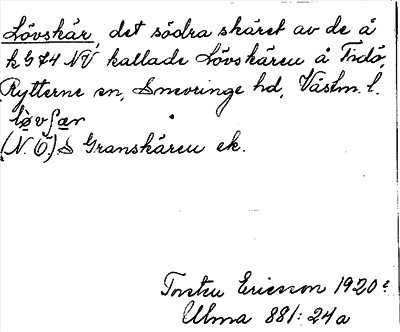 Lövskär, det södra skäret av de å
k G 74 NV kallade Lövskären å Tidö,
Rytterne sn, Snevringe hd, Västm. l.
løvʃær
(N. Ö.) S Granskären ek.
Torsten Ericsson 1920
Ulma 881:24a